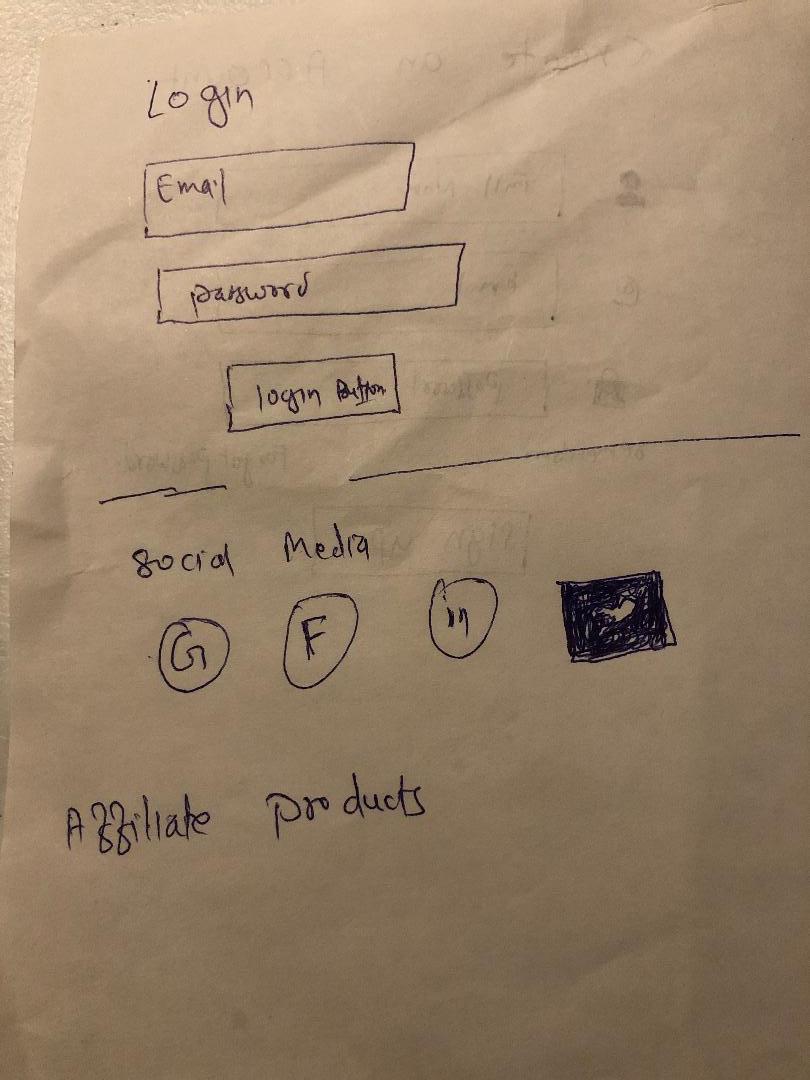 Login
Email
password
login Button
Social Media
G F in
Affiliate products